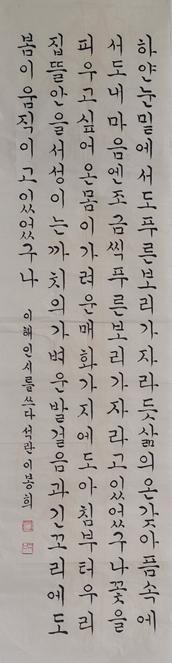 하얀눈밑에서도푸른보리가자라듯삶의온갖아픔속에
서도내마음엔조금씩푸른보리가자라고있었구나꽃을
피우고싶어온몸이가려운매화가지에도아침부터우리
집뜰안을서성이는까치의가벼운발걸음과긴꼬리에도
봄이움직이고있었구나 이해인시를쓰다 석란이봉희